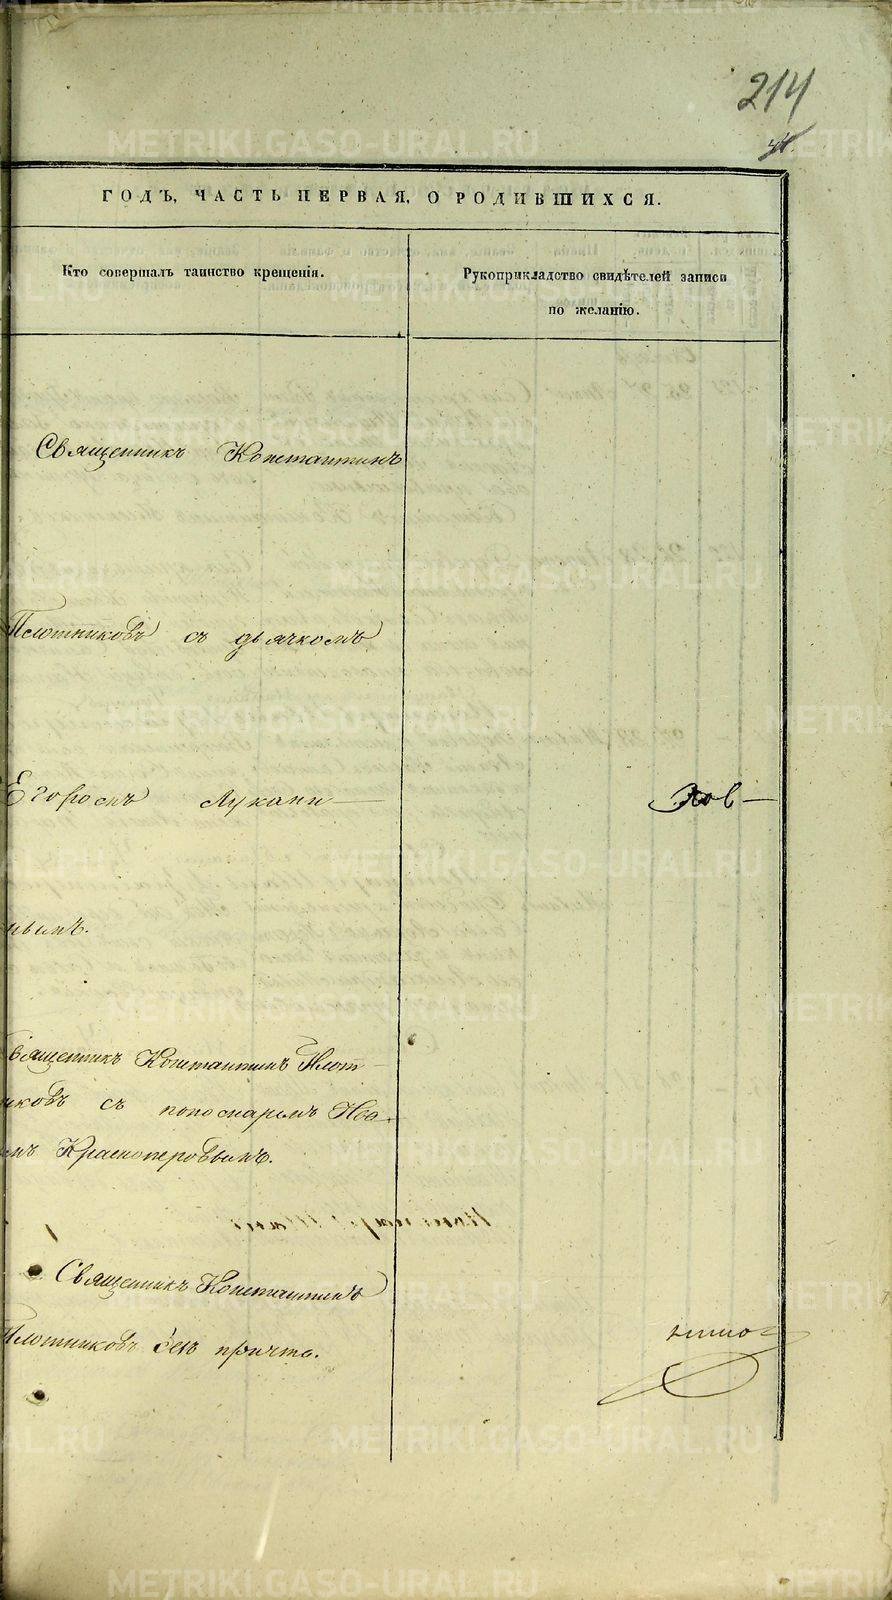 214
ГОДЪ, ЧАСТЬ ПЕРВАЯ, О РОДИВШИХСЯ.
Кто совершалъ таинство крещенія.
Рукоприкладство свидѣтелей записи
по желанію.
Священникъ Константинъ
Плотниковъ съ дьячкомъ
Егоромъ Лукани
ков
нымъ.
Священникъ Константинъ Плот
никовъ съ пономаремъ Ива
омъ Красноперовымъ.
Священникъ Константинъ
Плотниковъ безъ причта.
METRIKI.GASO-URAL.RU